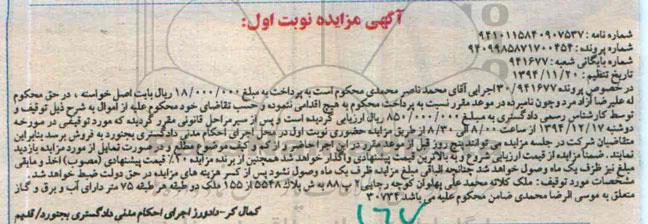 آگهی مزایده نوبت اول:
شماره نامه: ۹۴۱۰۱۱۵۸۴۰۹۰۷۵۳۷
شماره پرونده: ۹۴۰۹۹۸۵۸۷۱۷۰۰۴۵۴
شماره بایگانی شعبه: ۹۴۱۶۷۷
تاریخ تنظیم: ۱۳۹۴/۱۱/۲۰
در خصوص پرونده ۳۰/۹۴۱۶۷۷ اجرایی آقای محمد ناصر محمدی محکوم است به پرداخت به مبلغ ۱۸/۰۰۰/۰۰۰ ریال بابت اصل خواسته، در حق محکوم
له علیرضا آزاد مرد چون نامبرده در موعد مقرر نسبت به پرداخت محکوم به هیچ اقدامی ننموده و حسب تقاضای خود محکوم علیه از اموال به شرح ذیل توقیف و
توسط کارشناس رسمی دادگستری به مبلغی ۸۵۰/۰۰۰/۰۰۰ ریال ارزیابی گردیده است و پس از سیر مراحل قانونی مقرر گردیده که مورد توقیفی در مورخه
دوشنبه ۱۳۹۴/۱۲/۱۷ از ساعت ۸/۰۰ الی ۸/۳۰ از طریق مزایده حضوری نوبت اول در محل اجرای احکام مدنی دادگستری بجنورد به فروش برسد بنابراین
متقاضیان شرکت در جلسه مزایده می توانند پنج روز قبل از موعد مقرر در این اجرا حاضر و از کم و کیف موضوع مطلع و در صورت تمایل از مورد مزایده بازدید
نمایند. ضمناً مزایده از قیمت ارزیابی شروع و به بالاترین قیمت پیشنهادی واگذار خواهد شد همچنین از برنده مزایده ۱۰٪ قیمت پیشنهادی (مصوب) اخذ و مابقی
مبلغ نیز ظرف یک ماه وصول خواهد شد چنانچه الباقی مبلغ مزایده ظرف یک ماه وصول نشود پس از کسر هزینه های مزایده در حق دولت ضبط خواهد شد.
مشخصات مورد توقیف: ملک کلاته محمد علی پهلوان کوچه رجایی۲ پ ۸۸ به ش پلاک ۵۵۴۸ از ۱۵۵ ملک دو طبقه هر طبقه ۷۵ متر دارای آب و برق و گاز
متعلق به موسی الرضا محمدی ضامن محکوم علیه می باشد ۳۰۷۳۴
کمال کر-دادورز اجرای احکام مدنی دادگستری بجنورد/ قدیم